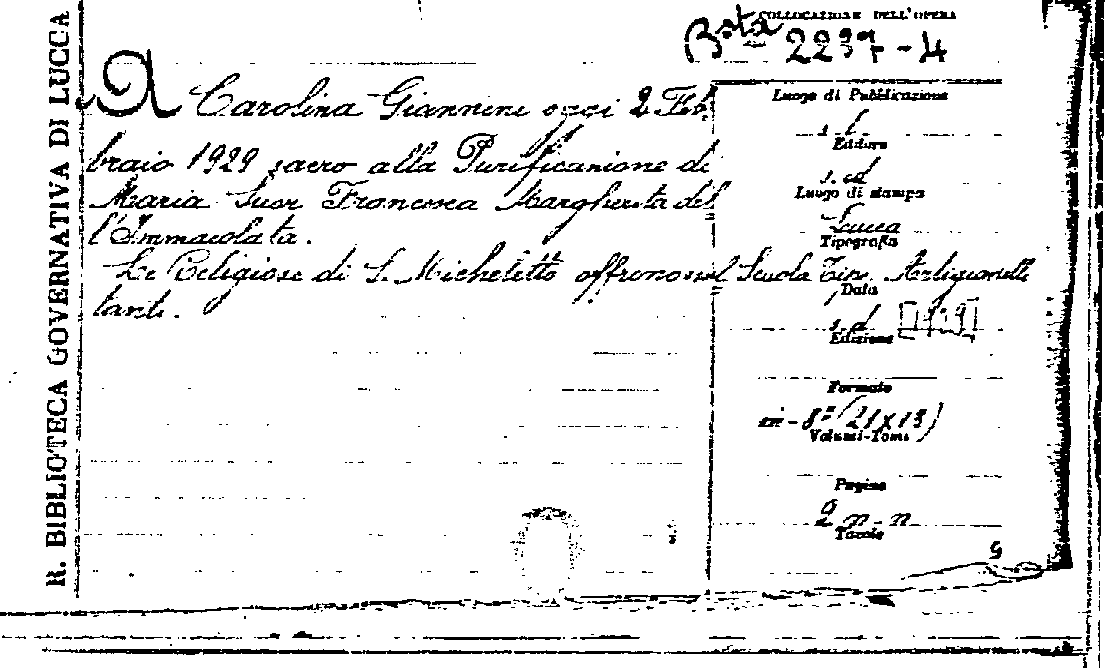 R. BIBLIOTECA GOVERNATIVA DI LUCCA
COLLOCAZIONE DELL'OPERA
Bsta 2237-4
A Carolina Giannini oggi 2 Feb
braio 1929 sacro alla Purificazione di
Maria Suor Francesca Margherita del
l'Immacolata.
Le Religiose di S. Micheletto offrono esul
tanti.
Luogo di Pubblicazione
s. l.
Editore
s. ed
Luogo di stampa
Lucca
Tipografia
Scuola Tip. Artigianelli
Data
s. d. [1929]
Edizione
Formato
in-8° (21x13)
Volumi-Tomi
Pagine
2 n. n
Tavole